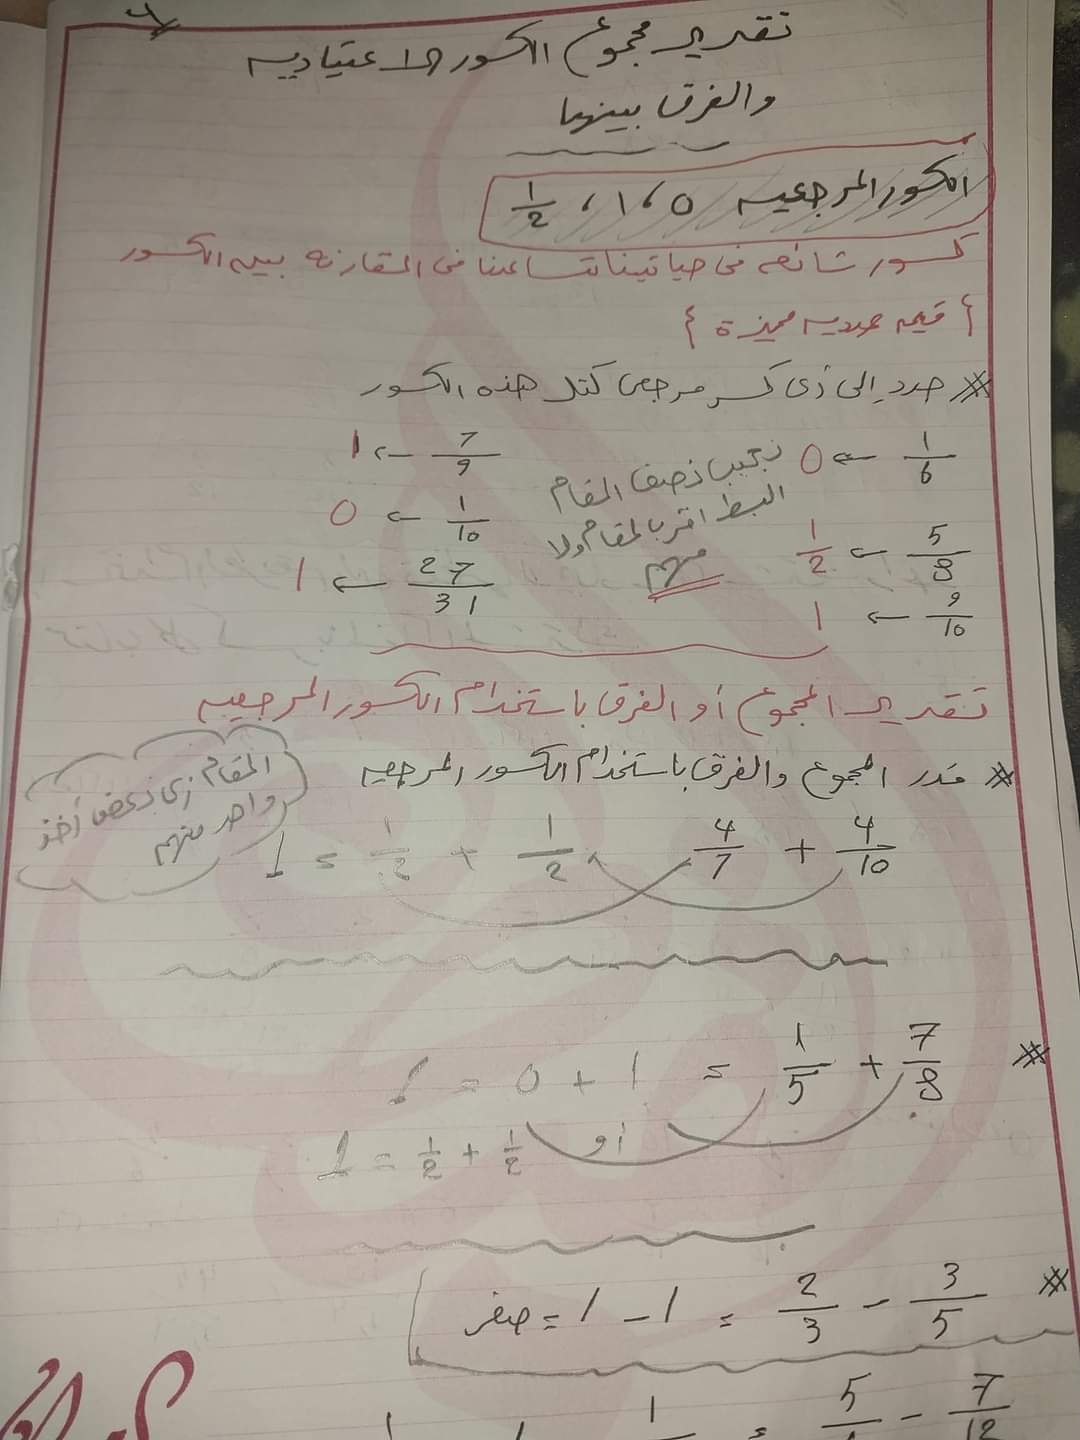 تقدير مجموع الكسور الاعتيادية
والفرق بينهما
الكسور المرجعيه 0 ، 1 ، 1/2
كسور شائعه فى حياتينا تساعدنا فى المقارنه بين الكسور
{ قيمه عدديه مميزة }
حدد إلى أى كسر مرجعى كتل هذه الكسور
1/6 ← 0
5/8 ← 1/2
9/10 ← 1
نجيب نصف المقام
البسط اقرب للمقام ولا
مهم
7/9 ← 1
1/10 ← 0
27/31 ← 1
تقدير المجموع أو الفرق باستخدام الكسور المرجعيه
قدر المجموع والفرق باستخدام الكسور المرجعيه
المقام زى بعض أخذ
واحد منهم
4/10 + 4/7 1/2 + 1/2 = 1
7/8 + 1/5 = 1 + 0 = 1
أو 1/2 + 1/2 = 1
3/5 - 2/3 = 1 - 1 = صفر
7/12 - 5